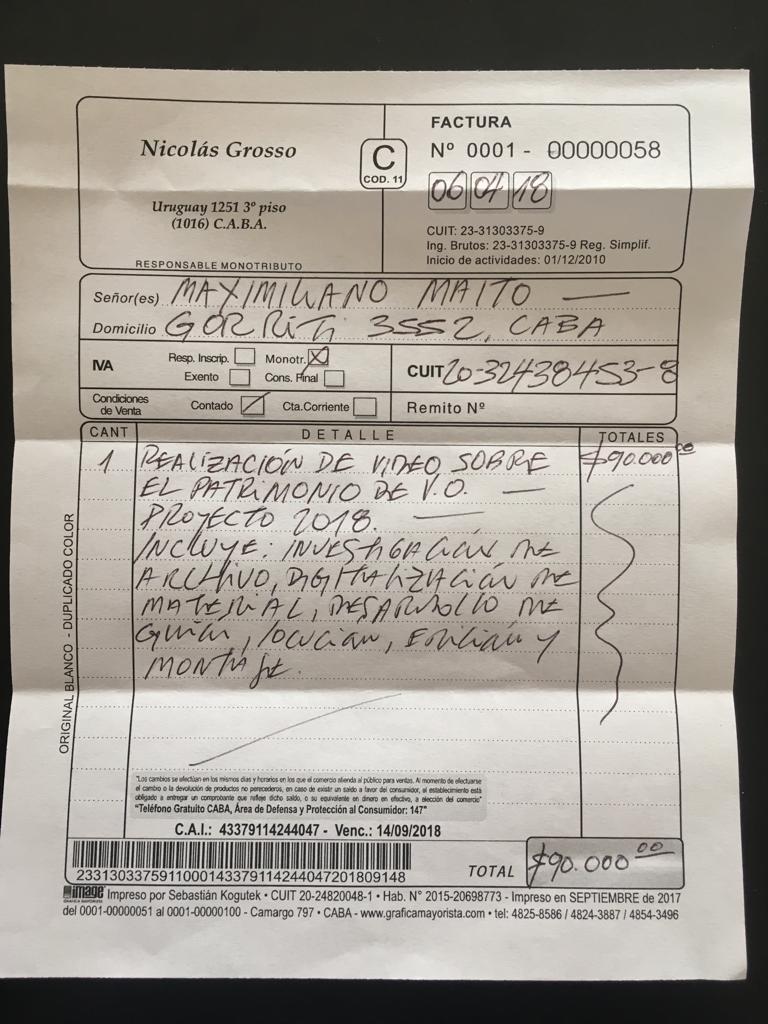 Nicolás Grosso
Uruguay 1251 3º piso
(1016) C.A.B.A.
RESPONSABLE MONOTRIBUTO
C
COD. 11
FACTURA
Nº 0001 - 00000058
06 04 18
CUIT: 23-31303375-9
Ing. Brutos: 23-31303375-9 Reg. Simplif.
Inicio de actividades: 01/12/2010
Señor(es) MAXIMILIANO MAITO
Domicilio GORRITI 3552, CABA
IVA Resp. Inscrip. Monotr. X
Exento Cons. Final
CUIT 20-32438453-8
Condiciones de Venta Contado Cta.Corriente
Remito Nº
CANT DETALLE TOTALES
1 REALIZACIÓN DE VIDEO SOBRE $90.000 00
EL PATRIMONIO DE V.O. —
PROYECTO 2018. —
INCLUYE: INVESTIGACIÓN DE
ARCHIVO, DIGITALIZACIÓN DE
MATERIAL, DESARROLLO DE
GUIÓN, LOCUCIÓN, EDICIÓN Y
MONTAJE.
ORIGINAL BLANCO - DUPLICADO COLOR
"Los cambios se efectúan en los mismos días y horarios en los que el comercio atienda al público para ventas. Al momento de efectuarse
el cambio o la devolución de productos no perecederos, en caso de existir un saldo a favor del consumidor, el establecimiento está
obligado a entregar un comprobante que refleje dicho saldo, o su equivalente en dinero en efectivo, a elección del comercio"
"Teléfono Gratuito CABA, Área de Defensa y Protección al Consumidor: 147"
C.A.I.: 43379114244047 - Venc.: 14/09/2018
2331303375911000143379114244047201809148
TOTAL $90.000 00
image Impreso por Sebastián Kogutek • CUIT 20-24820048-1 • Hab. N° 2015-20698773 - Impreso en SEPTIEMBRE de 2017
del 0001-00000051 al 0001-00000100 - Camargo 797 • CABA - www.graficamayorista.com • tel: 4825-8586 / 4824-3887 / 4854-3496